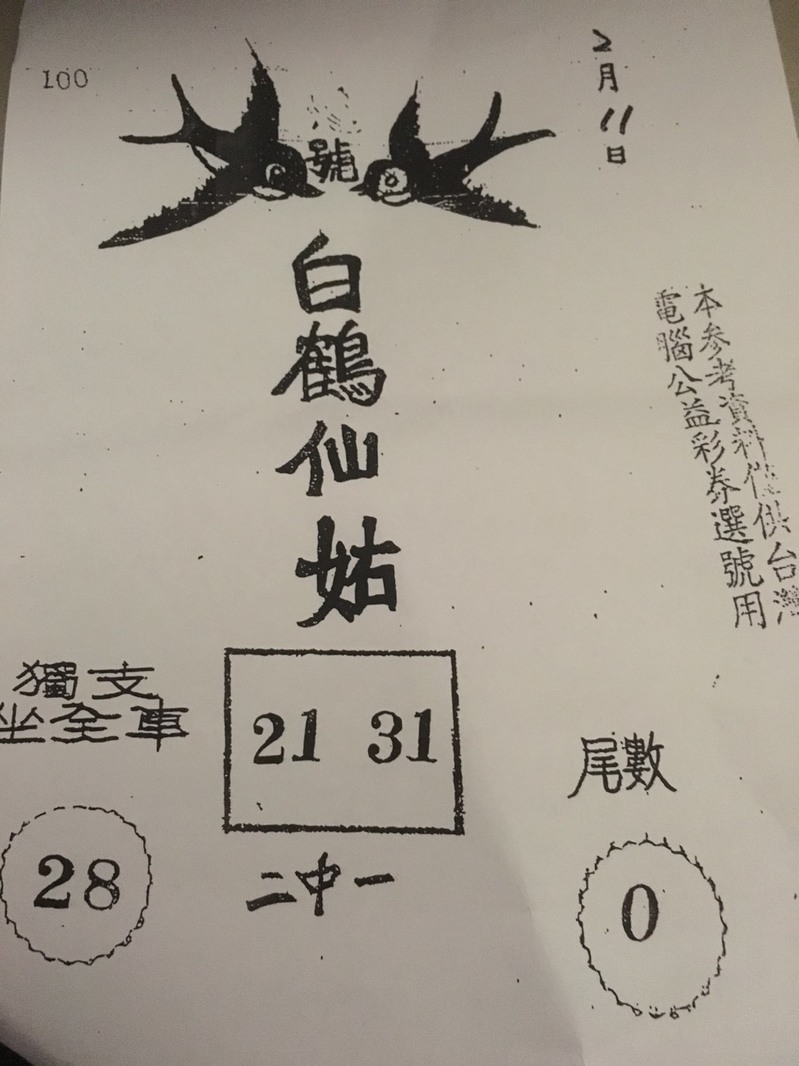 100
2月11日
號
白鶴仙姑
本參考資料僅供台灣
電腦公益彩券選號用
獨支
坐全車
21 31
尾數
28
二中一
0